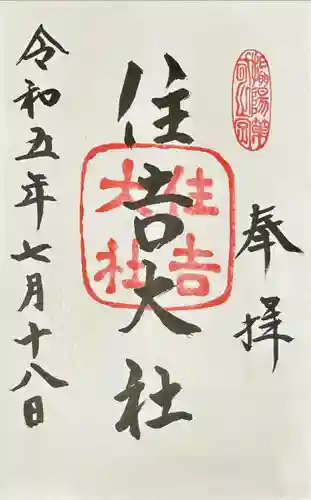 奉拝
住吉大社
住吉
大社
令和五年七月十八日